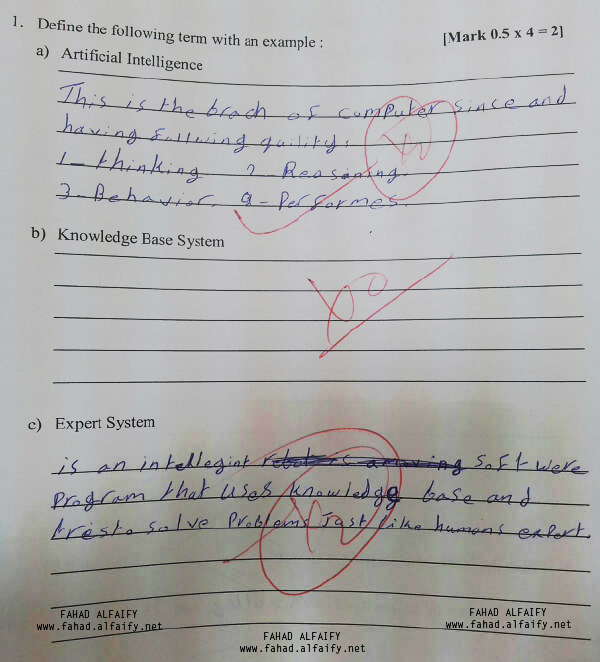 1. Define the following term with an example :
[Mark 0.5 x 4 = 2]
a) Artificial Intelligence
This is the brach of computer since and
having following quility:
1- thinking 2- Reasoning.
3- Behavior. 4- Performes.
b) Knowledge Base System
c) Expert System
is an intellegint soft were
program that uses knowledge base and
tries to solve Problems Just like humans expert.
FAHAD ALFAIFY
www.fahad.alfaify.net
FAHAD ALFAIFY
www.fahad.alfaify.net
FAHAD ALFAIFY
www.fahad.alfaify.net